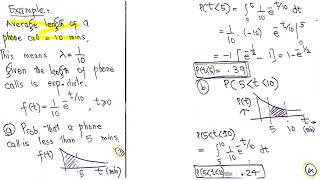 Example:
Average length of a
phone call = 10 mins.
This means λ = 1/10
given the length of phone
calls is exp. distr.
f(t) = 1/10 e^(-t/10), t>0
(a) Prob. that a phone
call is less than 5 mins.
f(t)
5 t (min)
P(t<5) = ∫_0^5 1/10 e^(-t/10) dt
= 1/10 · (-10) e^(-t/10) |_0^5
= -1 [e^(-1/2) - 1] = 1 - e^(-1/2)
P(t<5) = .39
(b) P(5<t<10)
f(t)
5 10 t (min)
P(5<t<10)
= ∫_5^10 1/10 e^(-t/10) dt
P(5<t<10) = .24